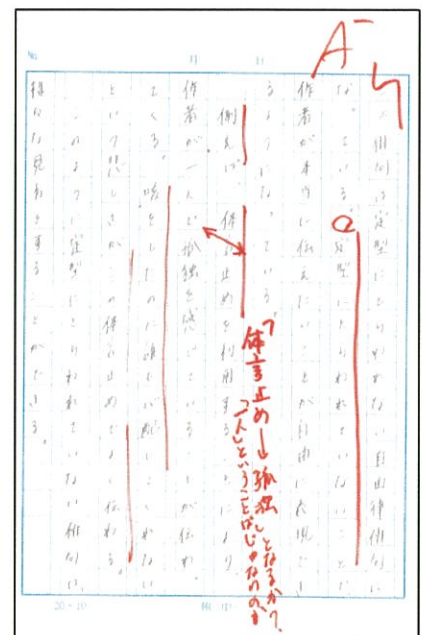 A⁻
No.
月
日
この俳句は定型にとらわれない自由律俳句に
なっている。定型にとらわれていないことで、
作者が本当に伝えたいことが自由に表現でき
るようになっている。
例えば、体言止めを利用することにより、
作者が一人で孤独を感じていることが伝わっ
てくる。咳をしたのに誰も心配してくれない
という悲しさがこの体言止めでよく伝わる。
このように定型にとらわれていない俳句は、
様々な見方をすることができる。
「体言止め→孤独」となるか?
「一人」ということばじゃないのか
20・10